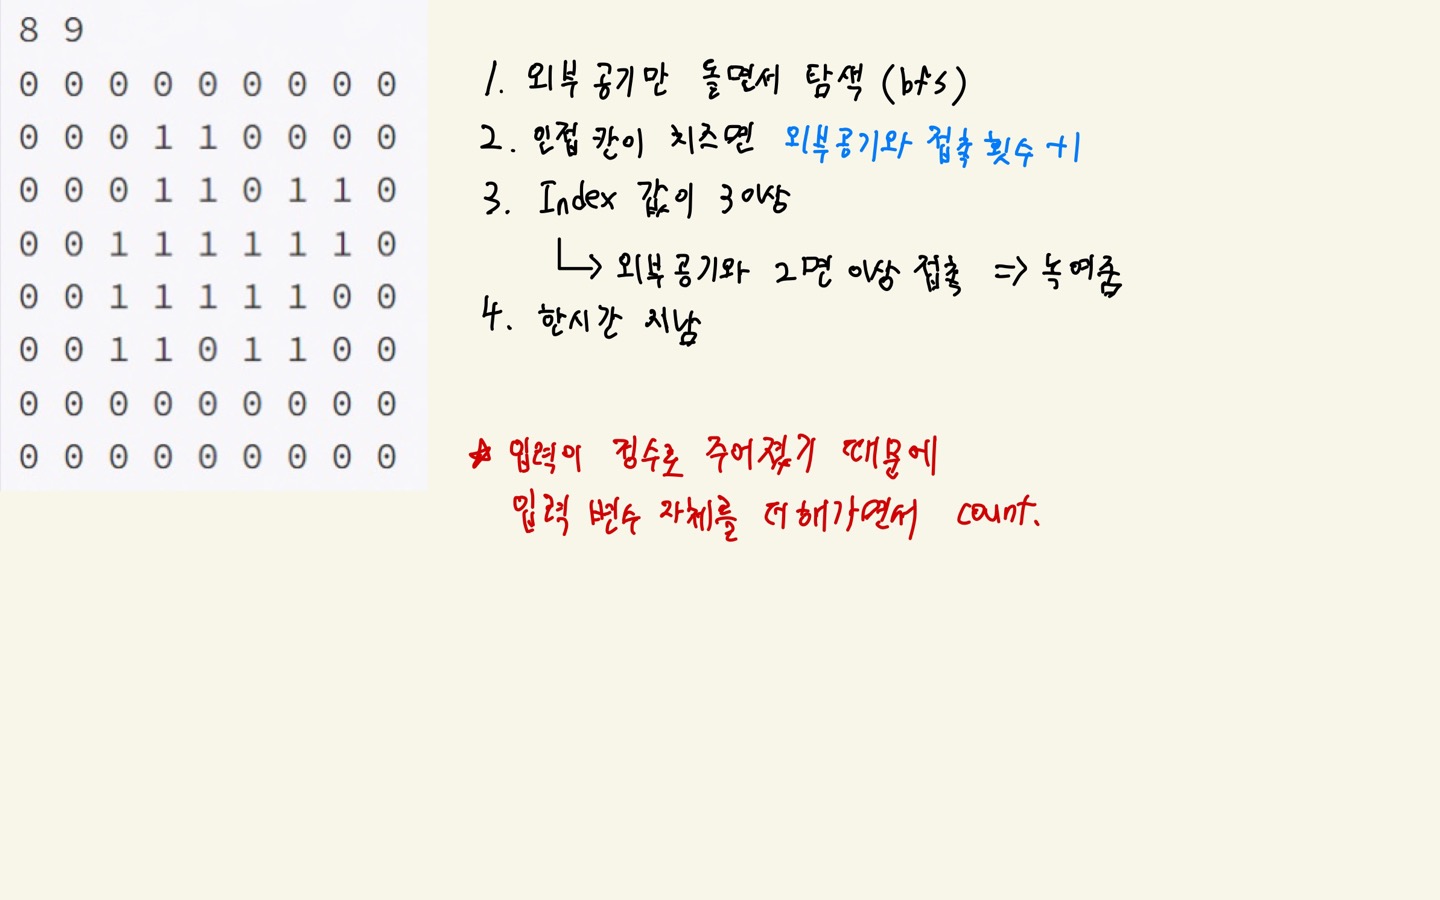 8 9
0 0 0 0 0 0 0 0 0
0 0 0 1 1 0 0 0 0
0 0 0 1 1 0 1 1 0
0 0 1 1 1 1 1 1 0
0 0 1 1 1 1 1 0 0
0 0 1 1 0 1 1 0 0
0 0 0 0 0 0 0 0 0
0 0 0 0 0 0 0 0 0
1. 외부 공기만 돌면서 탐색 (bfs)
2. 인접 칸이 치즈면 외부공기와 접촉 횟수 +1
3. Index 값이 3이상
외부 공기와 2면 이상 접촉 => 녹여줌
4. 한시간 지남
☆ 입력이 정수로 주어졌기 때문에
입력 변수 자체를 더해가면서 count.